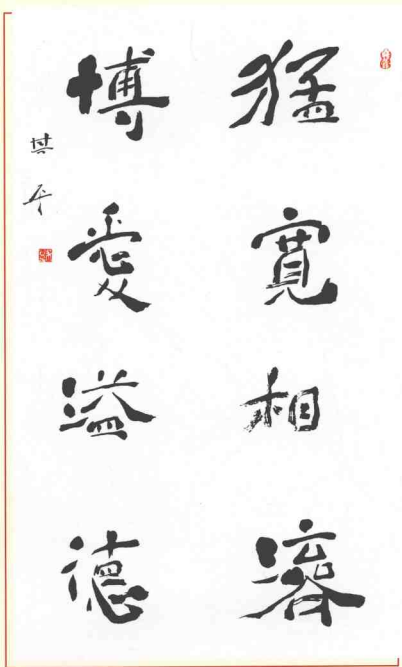 猛寬相濟
博愛溢德
其平